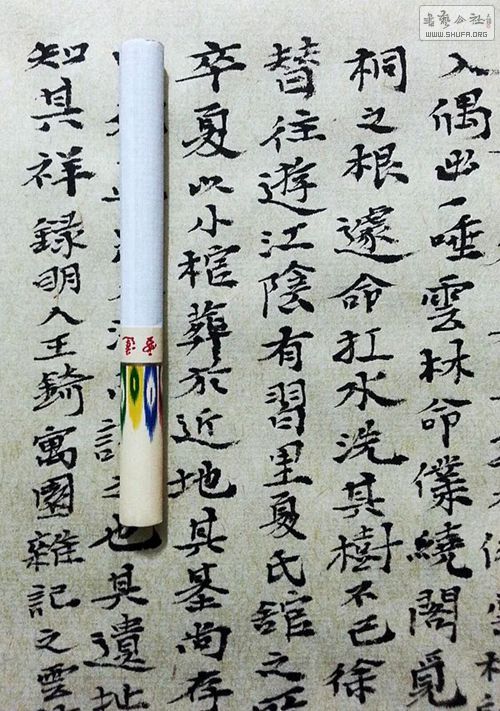 書藝公社
WWW.SHUFA.ORG
入偶出一唾雲林命僕繞閣覓
桐之根遽命扛水洗其樹不已徐
替往遊江陰有習里夏氏館之
卒夏以小棺葬於近地其墓尚存
之也其遺址
知其祥録明人王錡寓圃雜記之雲